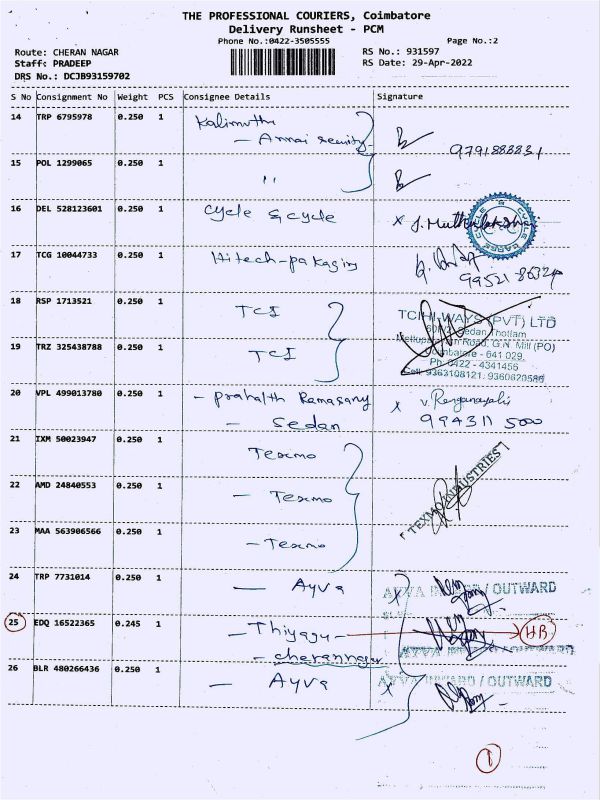 THE PROFESSIONAL COURIERS, Coimbatore
Delivery Runsheet - PCM
Phone No.:0422-3505555 Page No.:2
Route: CHERAN NAGAR RS No.: 931597
Staff: PRADEEP RS Date: 29-Apr-2022
DRS No.: DCJB93159702
S No Consignment No Weight PCS Consignee Details Signature
14 TRP 6795978 0.250 1 Kalimuthu
- Annai security 9791888831
15 POL 1299065 0.250 1 "
16 DEL 528123601 0.250 1 cycle & cycle x J. Muthulakshmi
17 TCG 10044733 0.250 1 Hitech-packaging
18 RSP 1713521 0.250 1 TCI
TCI HI-WAYS (PVT) LTD
Sedan Thottam
Mettupalayam Road, G.N. Mill (PO)
19 TRZ 325438788 0.250 1 TCI Coimbatore - 641 029.
Ph: 0422 - 4341456
Cell: 9363108121, 9360620586
20 VPL 499013780 0.250 1 - prahalth Ramasamy x V. Renganayaki
- Sedan 994311 5000
21 IXM 50023947 0.250 1 Texmo
22 AMD 24840553 0.250 1 - Texmo TEXMO INDUSTRIES
23 MAA 563906566 0.250 1 - Texmo
24 TRP 7731014 0.250 1 - Ayva x AYVA INWARD / OUTWARD
25 EDQ 16522365 0.245 1 - Thiyagu HB
- cherannagar AYVA INWARD / OUTWARD
26 BLR 480266436 0.250 1 - Ayva x AYVA INWARD / OUTWARD
1